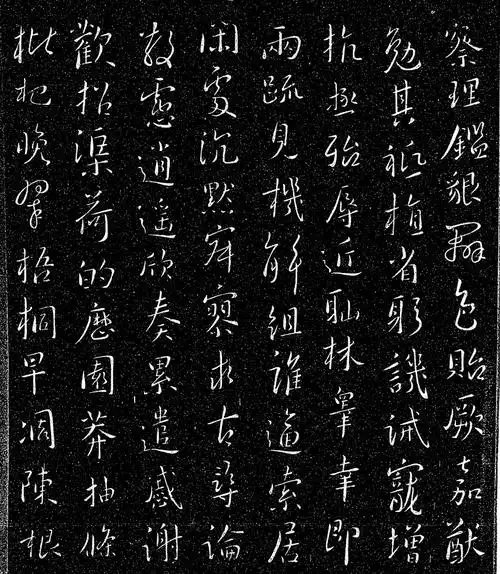 察理鑑貌辯色貽厥嘉猷
勉其祗植省躬譏誡寵增
抗極殆辱近耻林皋幸即
兩疏見機解組誰逼索居
閑處沉默寂寥求古尋論
散慮逍遙欣奏累遣感謝
歡招渠荷的歷園莽抽條
枇杷晚翠梧桐早凋陳根